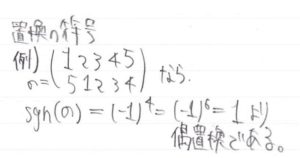 置換の符号
例) (1 2 3 4 5
σ= 5 1 2 3 4) なら.
sgn(σ) = (-1)^4 = (-1)^6 = 1 より
偶置換である。